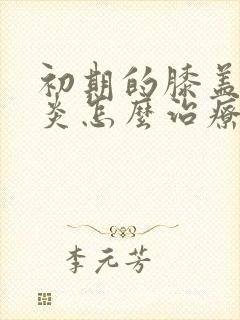 初期的膝盖
炎怎麼治療
李元芳